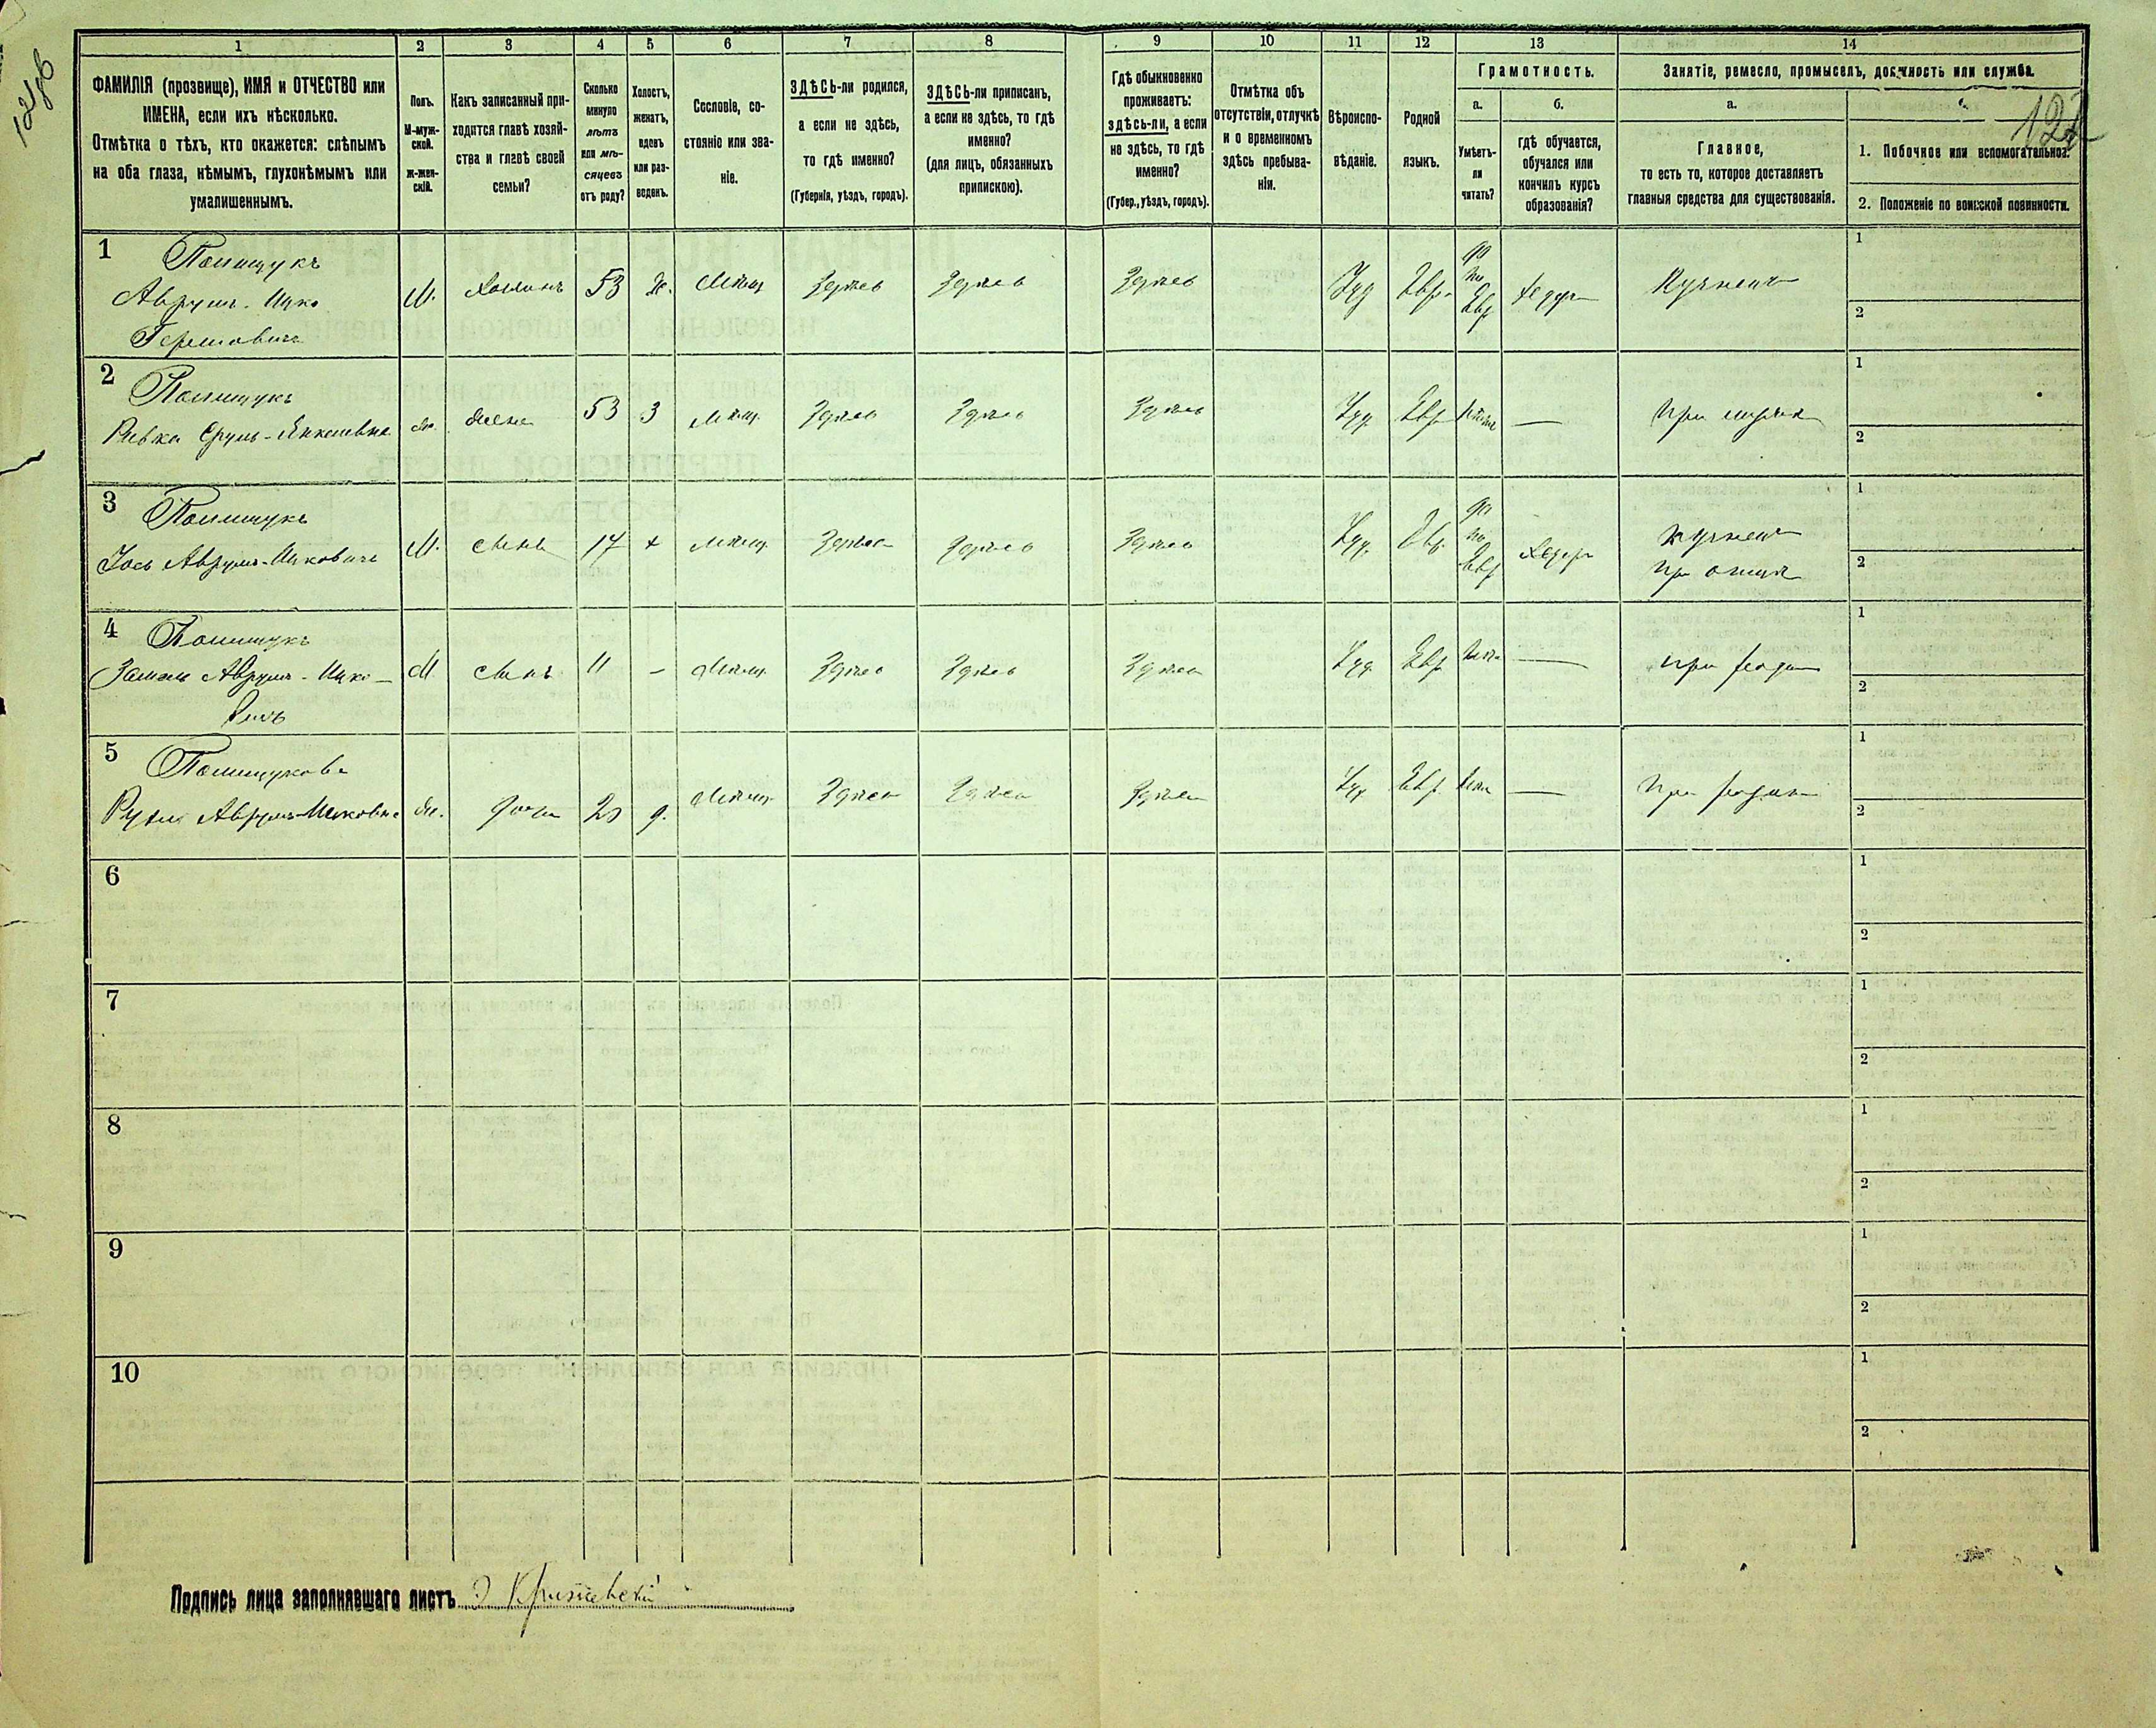 1 2 3 4 5 6 7 8 9 10 11 12 13 14
ФАМИЛІЯ (прозвище), ИМЯ и ОТЧЕСТВО или
ИМЕНА, если ихъ нѣсколько.
Отмѣтка о тѣхъ, кто окажется: слѣпымъ
на оба глаза, нѣмымъ, глухонѣмымъ или
умалишеннымъ.
Полъ.
М-муж-
ской.
ж-жен-
скій.
Какъ записанный при-
ходится главѣ хозяй-
ства и главѣ своей
семьи?
Сколько
минуло
лѣтъ
или мѣ-
сяцевъ
отъ роду?
Холостъ,
женатъ,
вдовъ
или раз-
веденъ.
Сословіе, со-
стояніе или зва-
ніе.
ЗДѢСЬ-ли родился,
а если не здѣсь,
то гдѣ именно?
(Губернія, уѣздъ, городъ).
ЗДѢСЬ-ли приписанъ,
а если не здѣсь, то гдѣ
именно?
(для лицъ, обязанныхъ
припискою).
Гдѣ обыкновенно
проживаетъ:
здѣсь-ли, а если
не здѣсь, то гдѣ
именно?
(Губер., уѣздъ, городъ).
Отмѣтка объ
отсутствіи, отлучкѣ
и о временномъ
здѣсь пребыва-
ніи.
Вѣроиспо-
вѣданіе.
Родной
языкъ.
Грамотность.
а.
Умѣетъ-
ли
читать?
б.
гдѣ обучается,
обучался или
кончилъ курсъ
образованія?
Занятіе, ремесло, промыселъ, должность или служба.
а.
Главное,
то есть то, которое доставляетъ
главныя средства для существованія.
1. Побочное или вспомогательное.
2. Положеніе по воинской повинности.
1 Полищукъ
Аврумъ-Ицко
Гершовичъ
М. Хозяинъ 53 Ж. Мѣщ Здѣсь Здѣсь Здѣсь Іуд Евр. да по Евр Хедер Кузнецъ
1
2
2 Полищукъ
Ривка Срулъ-Янкелевна
Ж. Жена 53 З Мѣщ. Здѣсь Здѣсь Здѣсь Іуд. Евр. Нѣтъ — при мужѣ
1
2
3 Полищукъ
Іось Аврумъ-Ицковичъ
М. Сынъ 17 х Мѣщ. Здѣсь Здѣсь Здѣсь Іуд. Евр. да по Евр Хедеръ Кузнецъ
при отцѣ
1
2
4 Полищукъ
Аврумъ-Ицко-
вичъ
М Сынъ 11 - Мѣщ. Здѣсь Здѣсь Здѣсь Іуд. Евр Нѣтъ —
1
2
5 Полищукова
Аврумъ-Ицковна
Ж. Дочь 20 д. Мѣщ. Здѣсь Здѣсь Здѣсь Іуд Евр. Нѣтъ —
1
2
6
1
2
7
1
2
8
1
2
9
1
2
10
1
2
Подпись лица заполнявшаго листъ